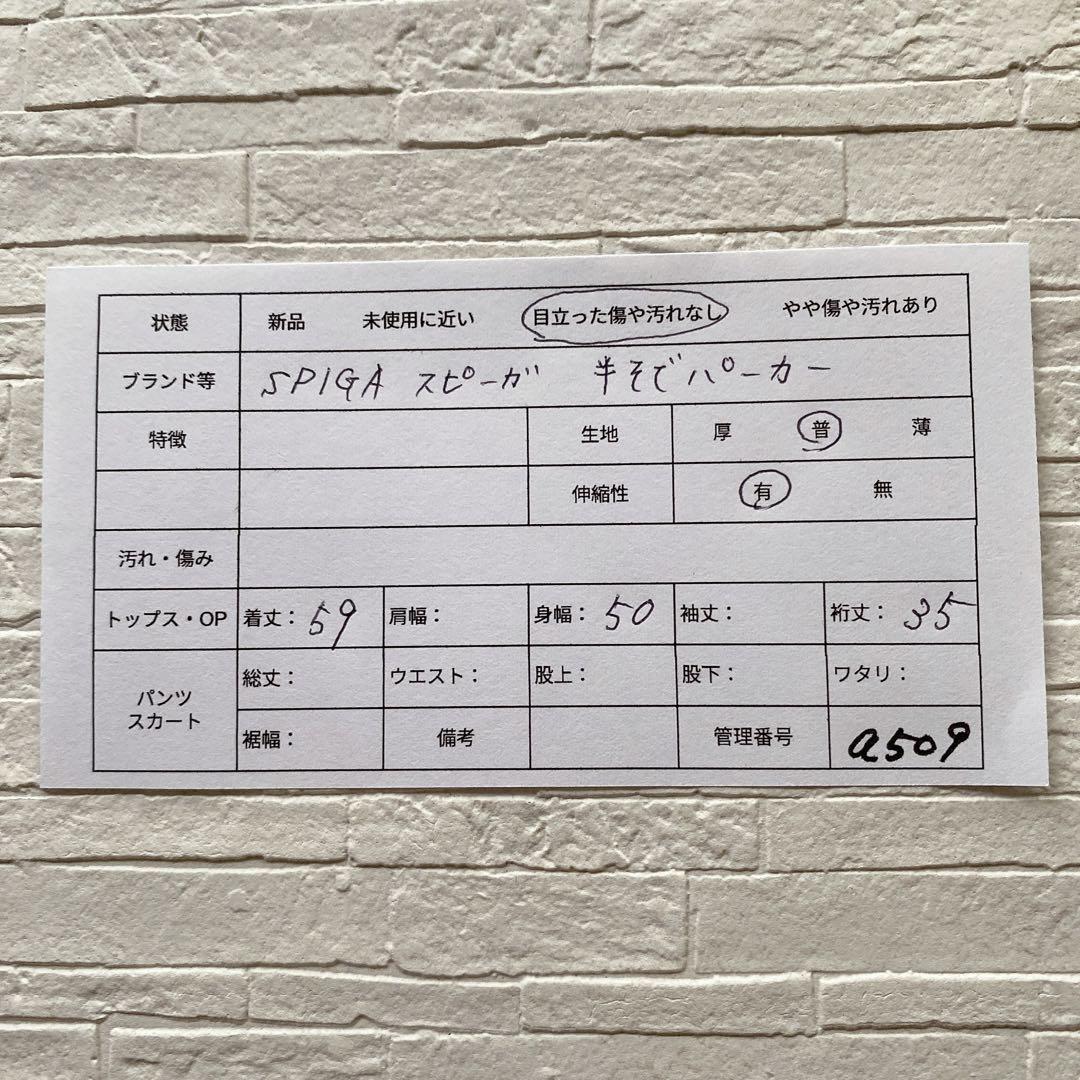 状態 新品 未使用に近い 目立った傷や汚れなし やや傷や汚れあり
ブランド等 SPIGA スピーガ 半そでパーカー
特徴 生地 厚 普 薄
伸縮性 有 無
汚れ・傷み
トップス・OP 着丈：59 肩幅： 身幅：50 袖丈： 裄丈：35
パンツ スカート 総丈： ウエスト： 股上： 股下： ワタリ：
裾幅： 備考 管理番号 a509